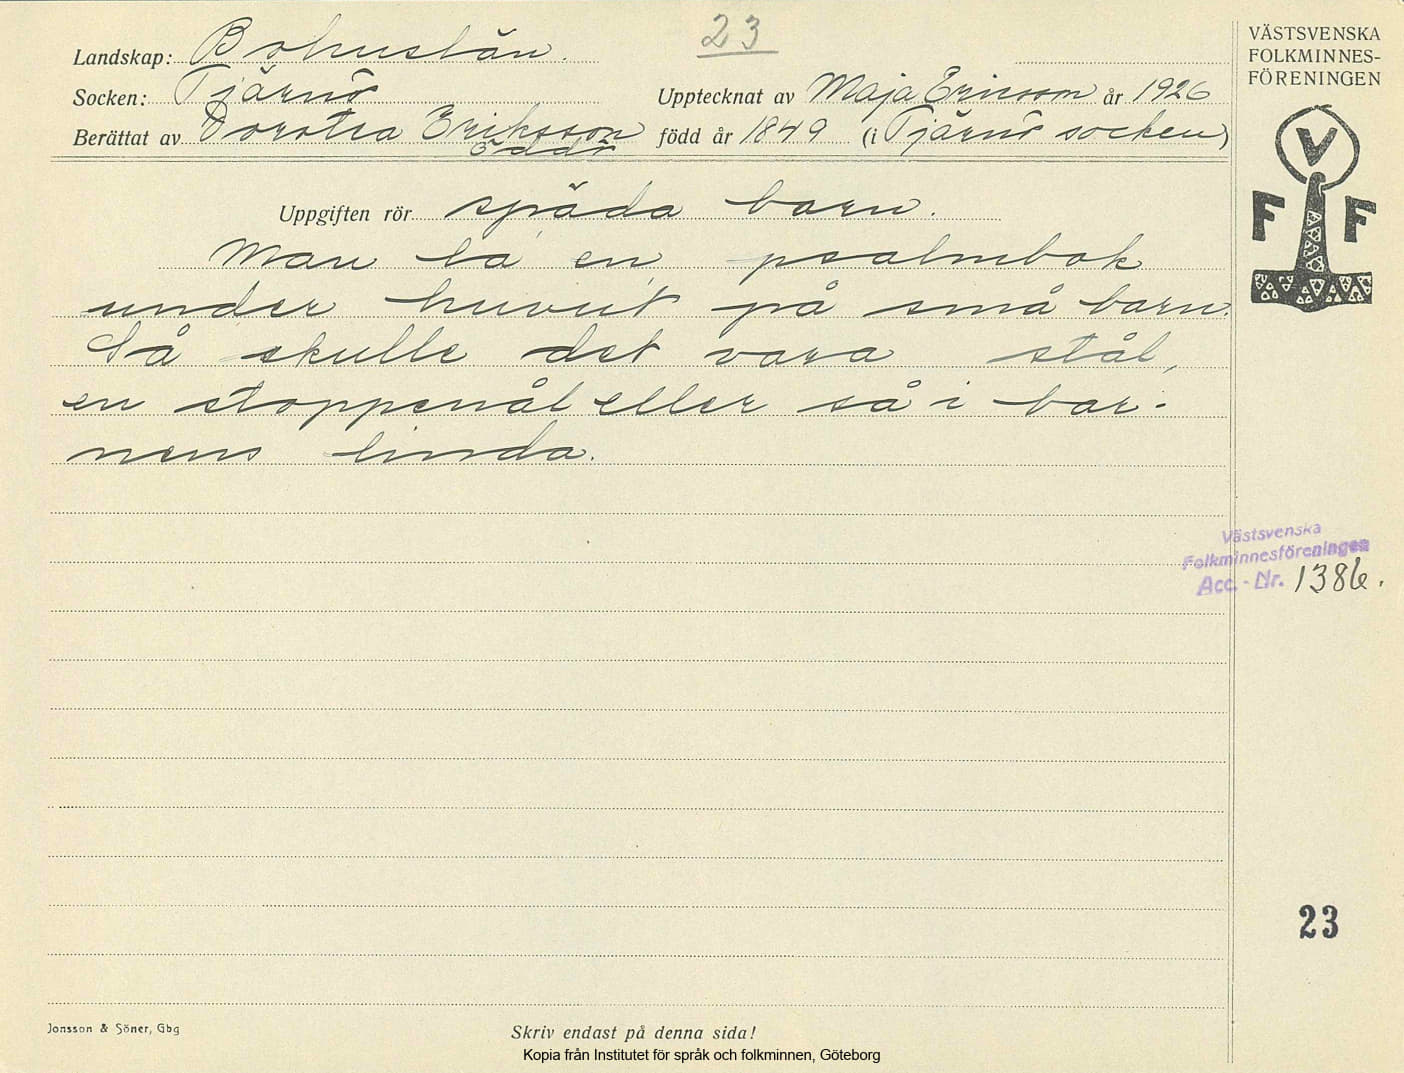 23
Landskap: Bohuslän.
Socken: Tjärnö
Upptecknat av Maja Ericsson år 1926
Berättat av Dorotea Eriksson född år 1849 (i Tjärnö socken)
Öddö
Uppgiften rör späda barn.
Man la en psalmbok
under huvut på små barn.
Så skulle det vara stål,
en stoppenål eller så i bar-
nens linda.
VÄSTSVENSKA
FOLKMINNES-
FÖRENINGEN
V
F F
Västsvenska
Folkminnesföreningen
Acc. - Nr. 1386.
23
Jonsson & Söner, Gbg
Skriv endast på denna sida!
Kopia från Institutet för språk och folkminnen, Göteborg